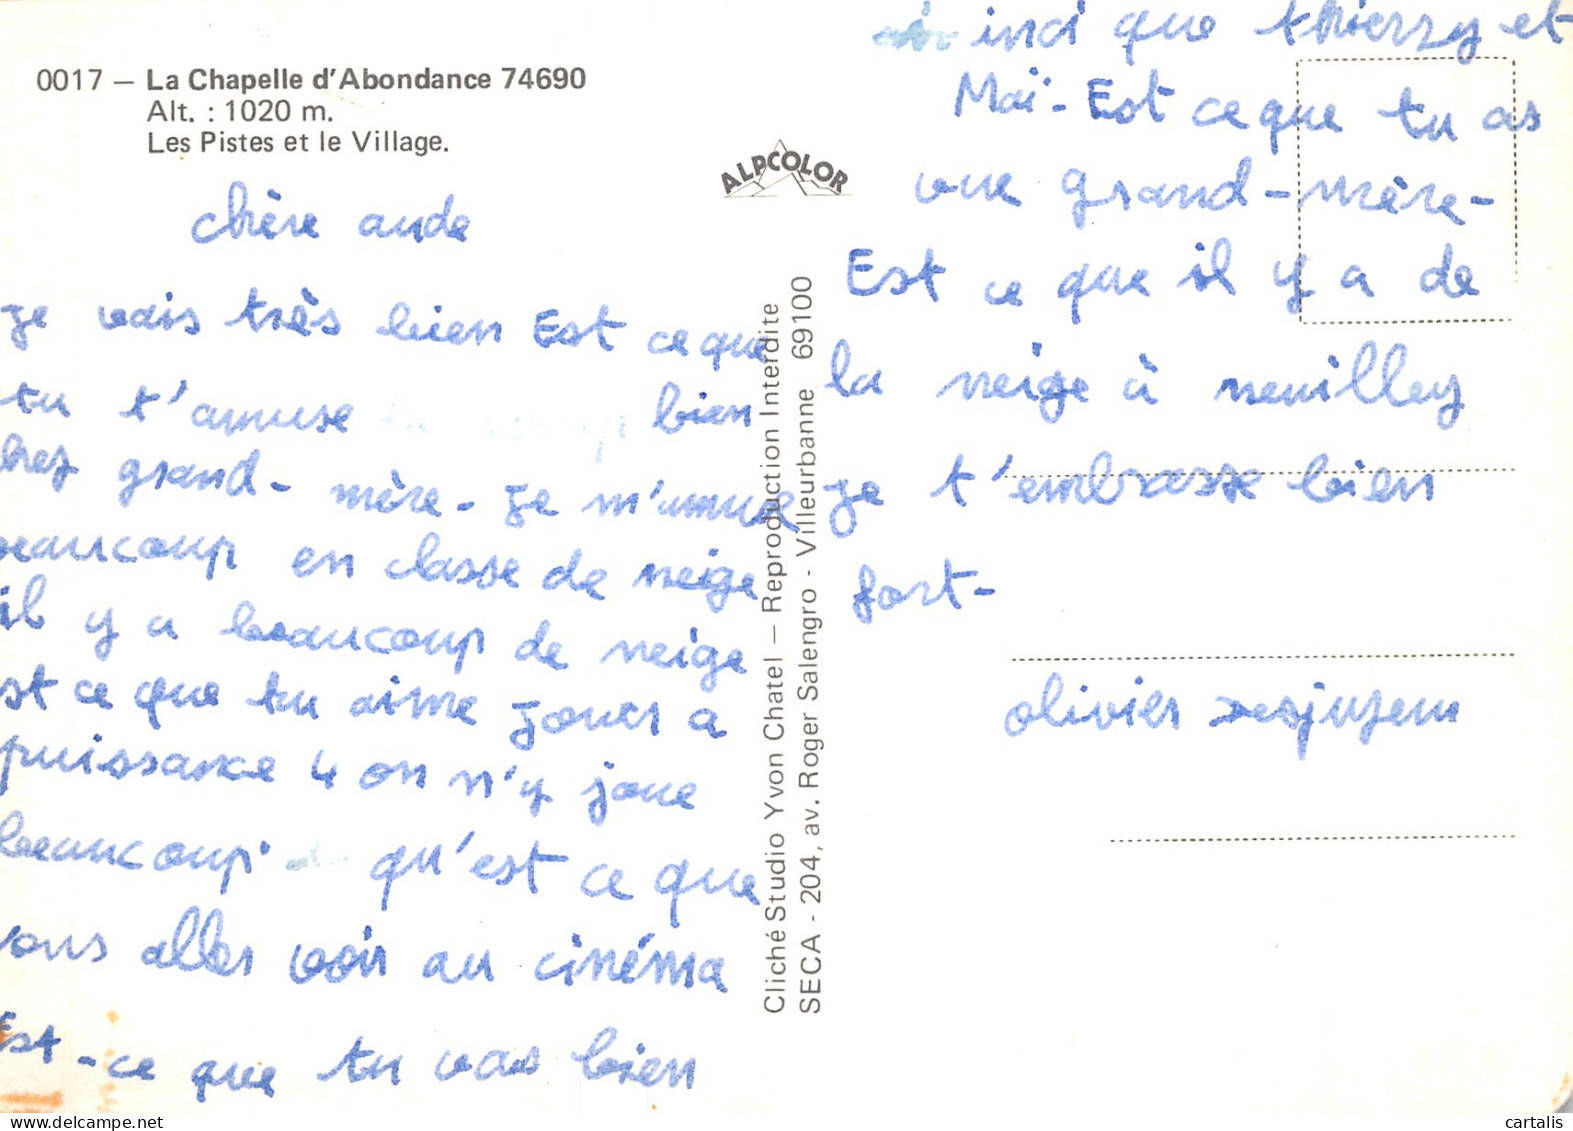 0017 — La Chapelle d'Abondance 74690
Alt. : 1020 m.
Les Pistes et le Village.
ALPCOLOR
chère aude
je vais très bien Est ce que
tu t'amuse bien
hez grand-mère- je m'amuse
eaucoup en classe de neige
il y a beaucoup de neige
st ce que tu aime jouer a
puissance 4 on n'y joue
beaucoup. qu'est ce que
vous aller voir au cinéma
Est-ce que tu vas bien
Cliché Studio Yvon Chatel — Reproduction Interdite
SECA - 204, av. Roger Salengro - Villeurbanne 69100
inci que thierry et
Maï- Est ce que tu as
vue grand-mère-
Est ce que il y a de
la neige à neuilley
je t'embrasse bien
fort-
olivier
cartalis